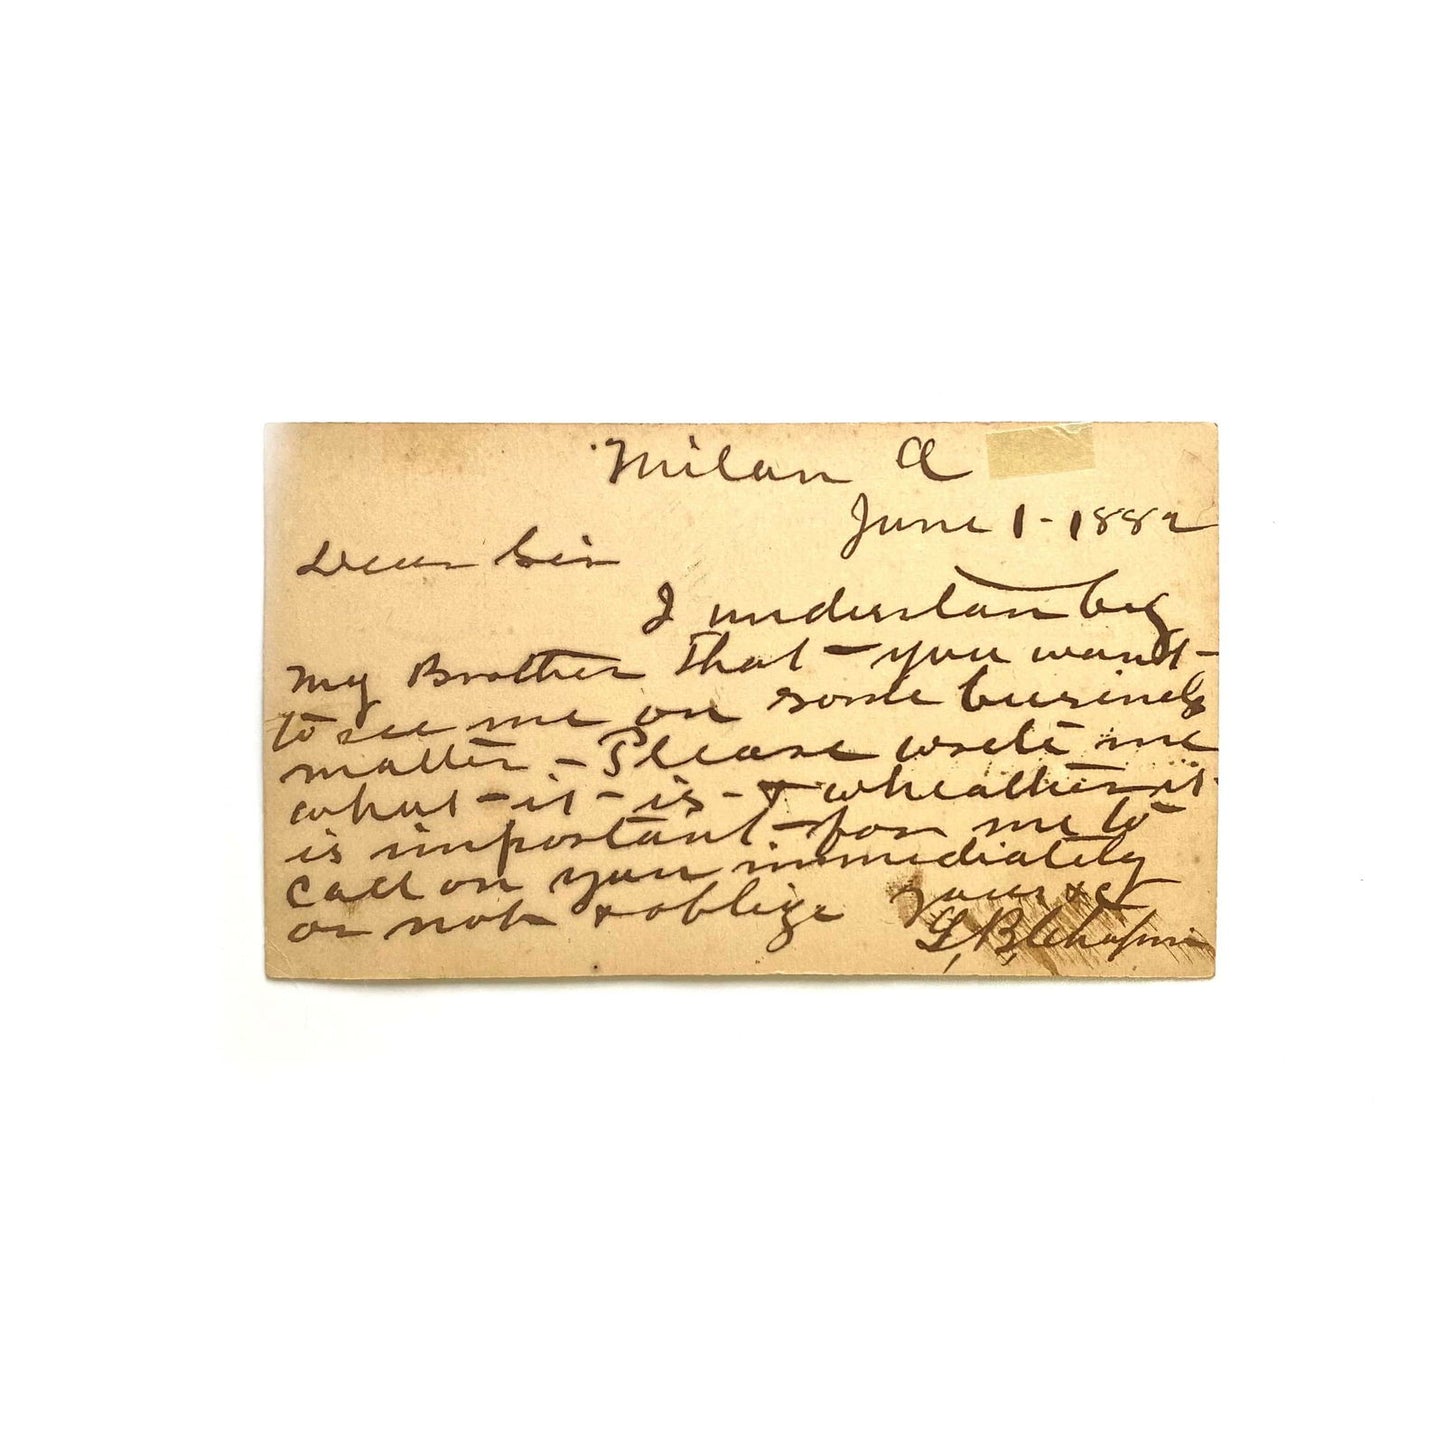 Milan O
June 1-1882
Dear Sir
I understan by
my Brother that - you want -
to see me on some business
matter. - Please write me
what - it - is - & wheather it
is important - for me to
call on you immediately
or not & oblige Yours &c
L, B, Chapin